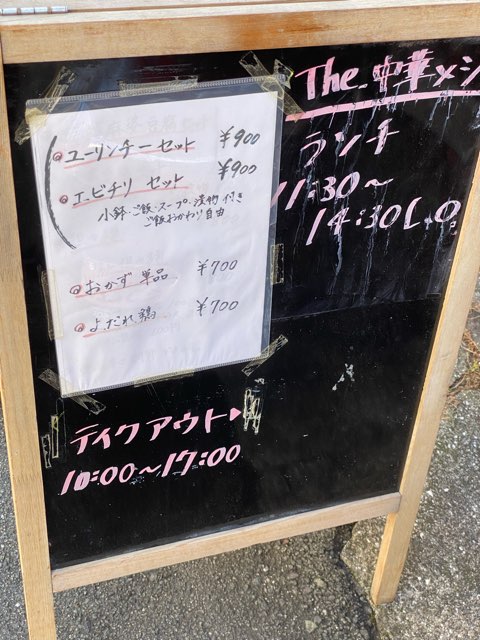 The 中華メシ
ランチ
11:30～
14:30L.O
ユーリンチーセット ¥900
エビチリ セット ¥900
小鉢・ご飯・スープ・漬物 付き
ご飯おかわり自由
おかず 単品 ¥700
よだれ鶏 ¥700
テイクアウト▶
10:00～17:00